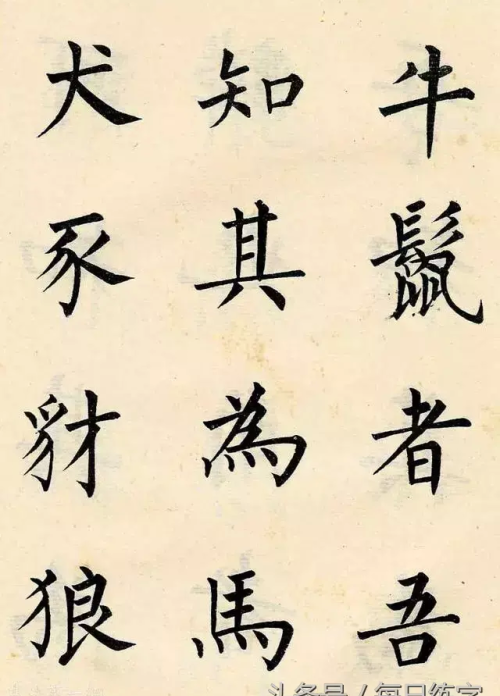 牛鬣者吾
知其為馬
犬豕豺狼
头条号 / 每日练字